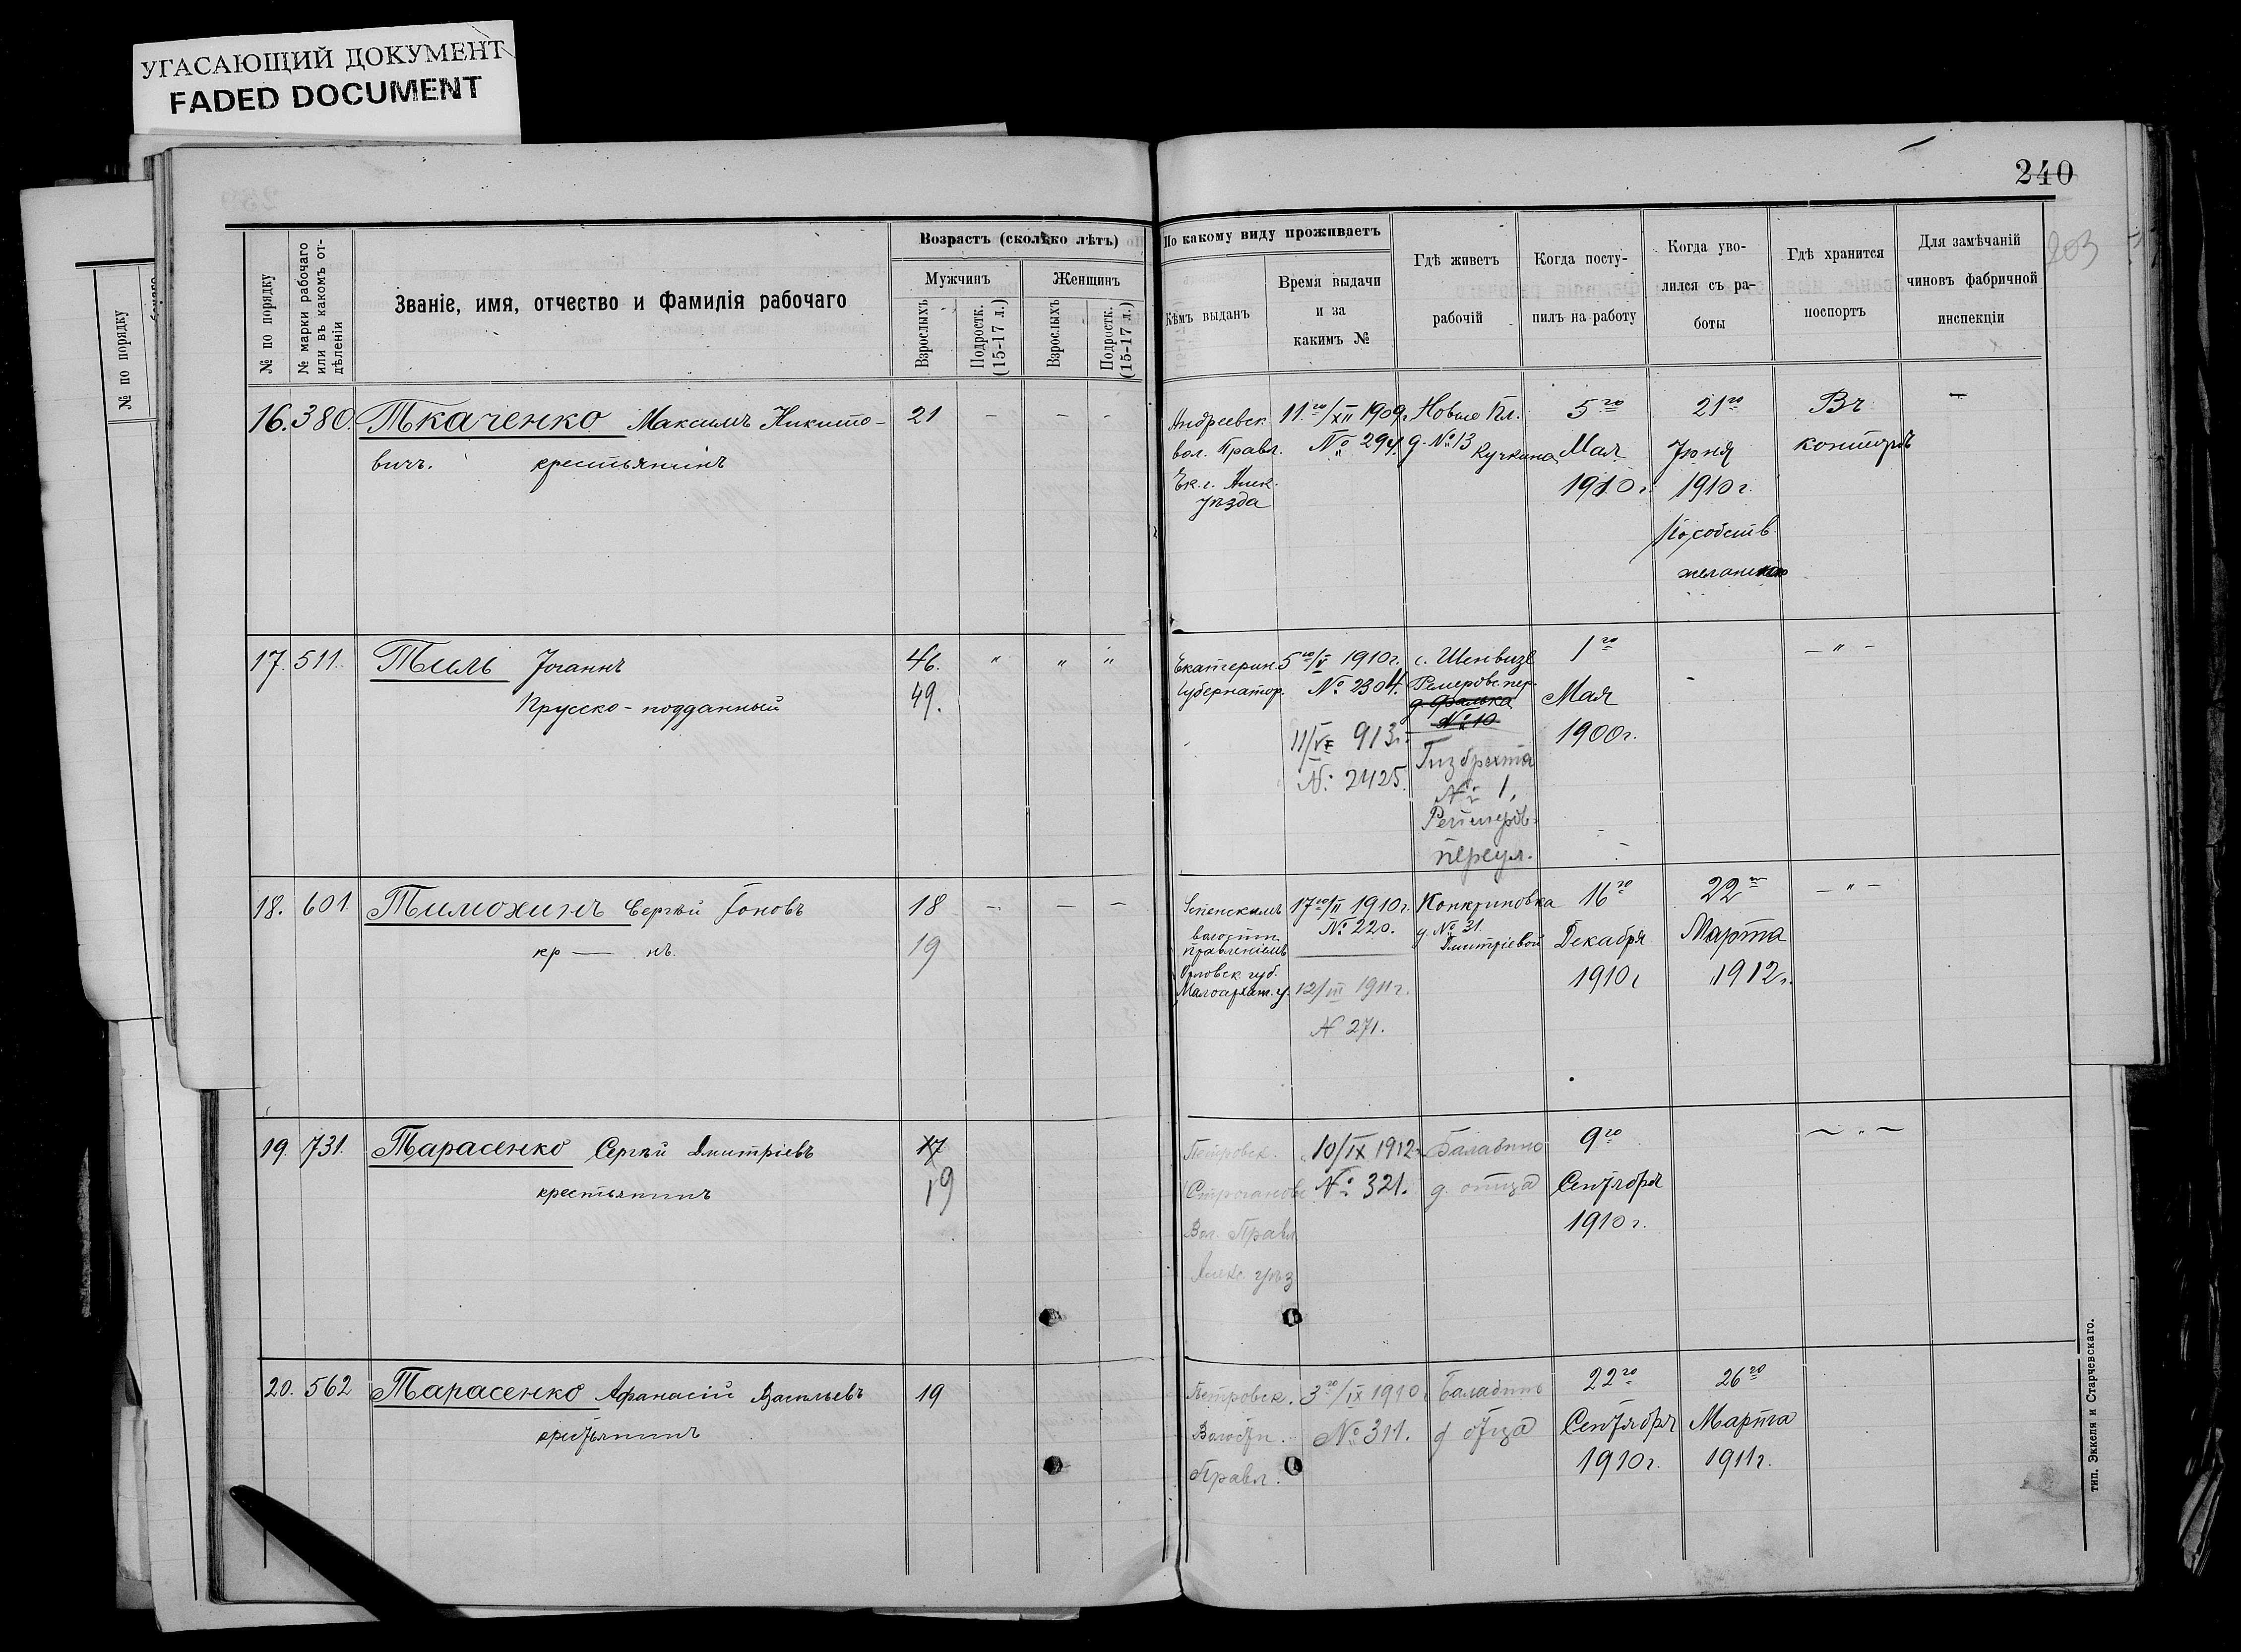 УГАСАЮЩИЙ ДОКУМЕНТ
FADED DOCUMENT
240
203
№ по порядку
№ по порядку
№ марки рабочаго
или въ какомъ от-
дѣленіи
Званіе, имя, отчество и фамилія рабочаго
Возрастъ (сколько лѣтъ)
Мужчинъ
Женщинъ
Взрослыхъ
Подростк.
(15-17 л.)
Взрослыхъ
Подростк.
(15-17 л.)
По какому виду проживаетъ
Кѣмъ выданъ
Время выдачи
и за
какимъ №
Гдѣ живетъ
рабочій
Когда посту-
пилъ на работу
Когда уво-
лился съ ра-
боты
Гдѣ хранится
поспортъ
Для замѣчаній
чиновъ фабричной
инспекціи
16. 380. Ткаченко Максимъ Никито-
вичъ. крестьянинъ
21 — — —
Андреевск.
вол. Правл.
Ек. г. Алек.
уѣзда
11го/XII 1909г.
№ 294.
Новые Пл.
д. №13 Кучкина
5го
Мая
1910 г.
21го
Іюня
1910 г.
По собств.
желанію
Въ
конторѣ
—
17. 511. Тиль Іоганнъ
Прусско-подданный
46. " " "
49.
Екатерин.
Губернатор.
5го/V 1910г.
№ 2304.
11/VI 913г.
№ 2425.
с. Шенвизе
Ремеровс. пер.
д. Фалька
№ 10
Гизбрехта
№ 1,
Реймеров.
переул.
1го
Мая
1900г.
— " —
18. 601. Тимохинъ Сергѣй Іоновъ
кр — нъ.
18 — — —
19
волостн.
Правленіемъ
Орловск. губ.
Малоархан. у.
17го/II 1910г.
№ 220.
12/III 1911 г.
№ 271.
д. № 31.
Дмитріевой
16го
Декабря
1910 г
22го
Марта
1912 г.
— " —
19. 731. Тарасенко Сергѣй Дмитріевъ
крестьянинъ
17
19
Петровск.
Вол. Правл
Алекс. уѣз
10/IX 1912г.
№ 321.
Балабино
д. отца
9го
Сентября
1910 г.
— " —
20. 562 Тарасенко Афанасій Васильевъ
крестьянинъ
19
Петровск.
Волостн.
Правл.
3го/IX 1910
№ 311.
Балабино
д отца
22го
Сентября
1910 г.
26го
Марта
1911 г.
тип. Эккеля и Старчевскаго.